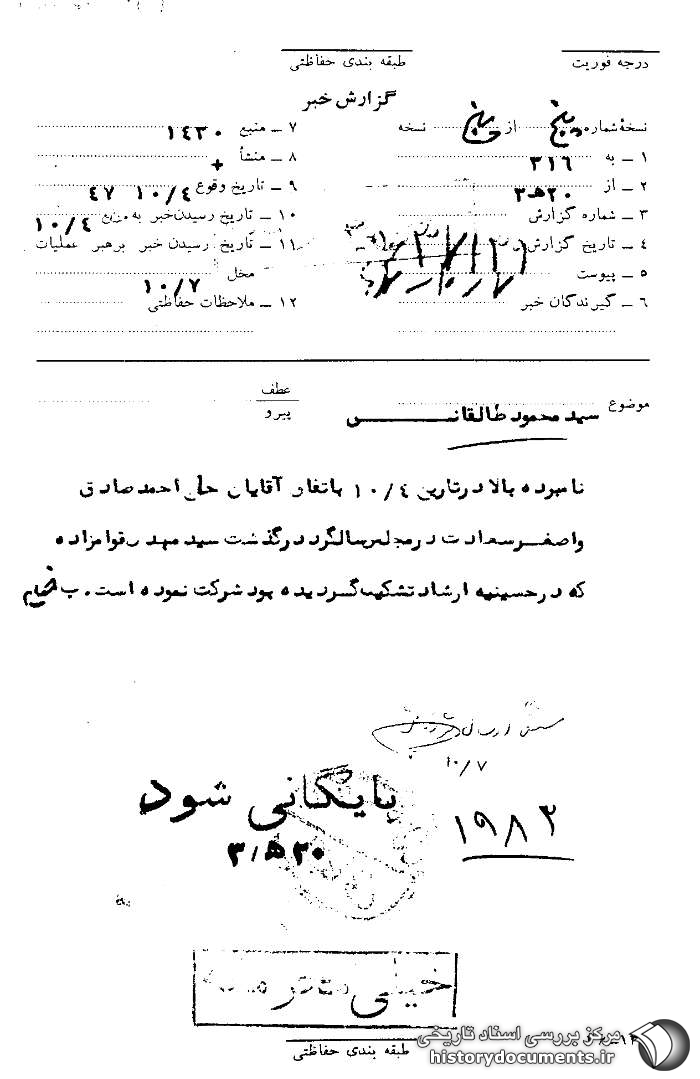 درجه فوریت
طبقه بندی حفاظتی
گزارش خبر
نسخهٔ شماره پنج از پنج نسخه
۱ ـ به ۳۱۶
۲ ـ از ۲۰ ه‍ ۳
۳ ـ شماره گزارش
۴ ـ تاریخ گزارش
۵ ـ پیوست
۶ ـ گیرندگان خبر
۷ ـ منبع ۱۴۳۰
۸ ـ منشأ +
۹ ـ تاریخ وقوع ۱۰/۴ ۴۷
۱۰ ـ تاریخ رسیدن خبر به منبع ۱۰/۴
۱۱ ـ تاریخ رسیدن خبر برهبر عملیات
محل ۱۰/۷
۱۲ ـ ملاحظات حفاظتی
موضوع سید محمود طالقانی
عطف
پیرو
نامبرده بالا در تاریخ ۱۰/۴ باتفاق آقایان حاج احمد صادق
واصغر سعادت در مجلس سالگرد درگذشت سید مهدی قوامزاده
که در حسینیه ارشاد تشکیل گردیده بود شرکت نموده است. ب
۱۰/۷
بایگانی شود
۲۰ ه‍ ۳
۱۹۸۳
خیلی محرمانه
طبقه بندی حفاظتی
مرکز بررسی اسناد تاریخی
historydocuments.ir